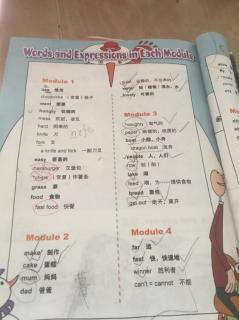 Words and Expressions in Each Module
Module 1
easy 容易的
hamburger 汉堡包
chips (常复)炸薯条
grass 草
food 食物
fast food 快餐
want 想要
hungry 饥饿的
mess 肮脏，凌乱
hard 困难的
knife 刀
knife
fork 叉
a knife and fork 一副刀叉
Module 2
make 制作
cake 蛋糕
mum 妈妈
dad 爸爸
lovely 可爱的
Module 3
naughty 淘气的
boat 小船，小舟
dragon boat 龙舟
people 人，人们
row 划(船)
lake 湖
feed 喂，为……提供食物
bread 面包
get out 走开，离开
Module 4
far 远
fast 快，快速地
winner 胜利者
can't = cannot 不能